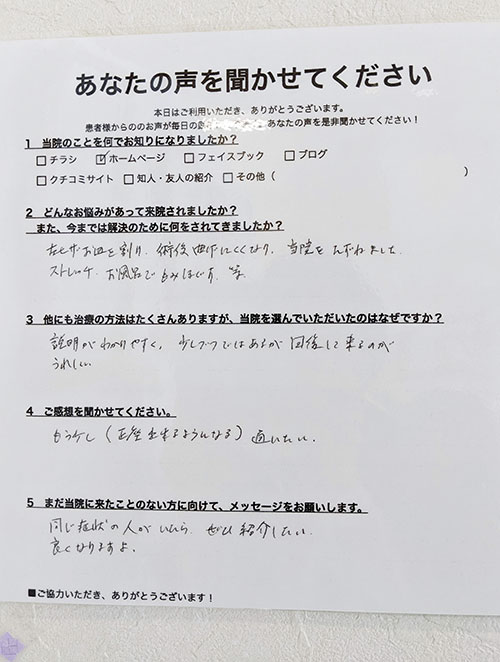 あなたの声を聞かせてください
本日はご利用いただき、ありがとうございます。
患者様からののお声が毎日の あなたの声を是非聞かせてください！
1 当院のことを何でお知りになりましたか？
□チラシ ☑ホームページ □フェイスブック □ブログ
□クチコミサイト □知人・友人の紹介 □その他（ ）
2 どんなお悩みがあって来院されましたか？
また、今までは解決のために何をされてきましたか？
左ヒザお皿を割り、術後曲げにくくなり、当院をたずねました。
ストレッチ、お風呂でもみほぐす、等
3 他にも治療の方法はたくさんありますが、当院を選んでいただいたのはなぜですか？
説明がわかりやすく、少しづつではあるが回復して来るのが
うれしい
4 ご感想を聞かせてください。
もう少し（正座出来るようになる）通いたい。
5 まだ当院に来たことのない方に向けて、メッセージをお願いします。
同じ症状の人がいたら、ぜひ紹介したい。
良くなりますよ。
■ご協力いただき、ありがとうございます！